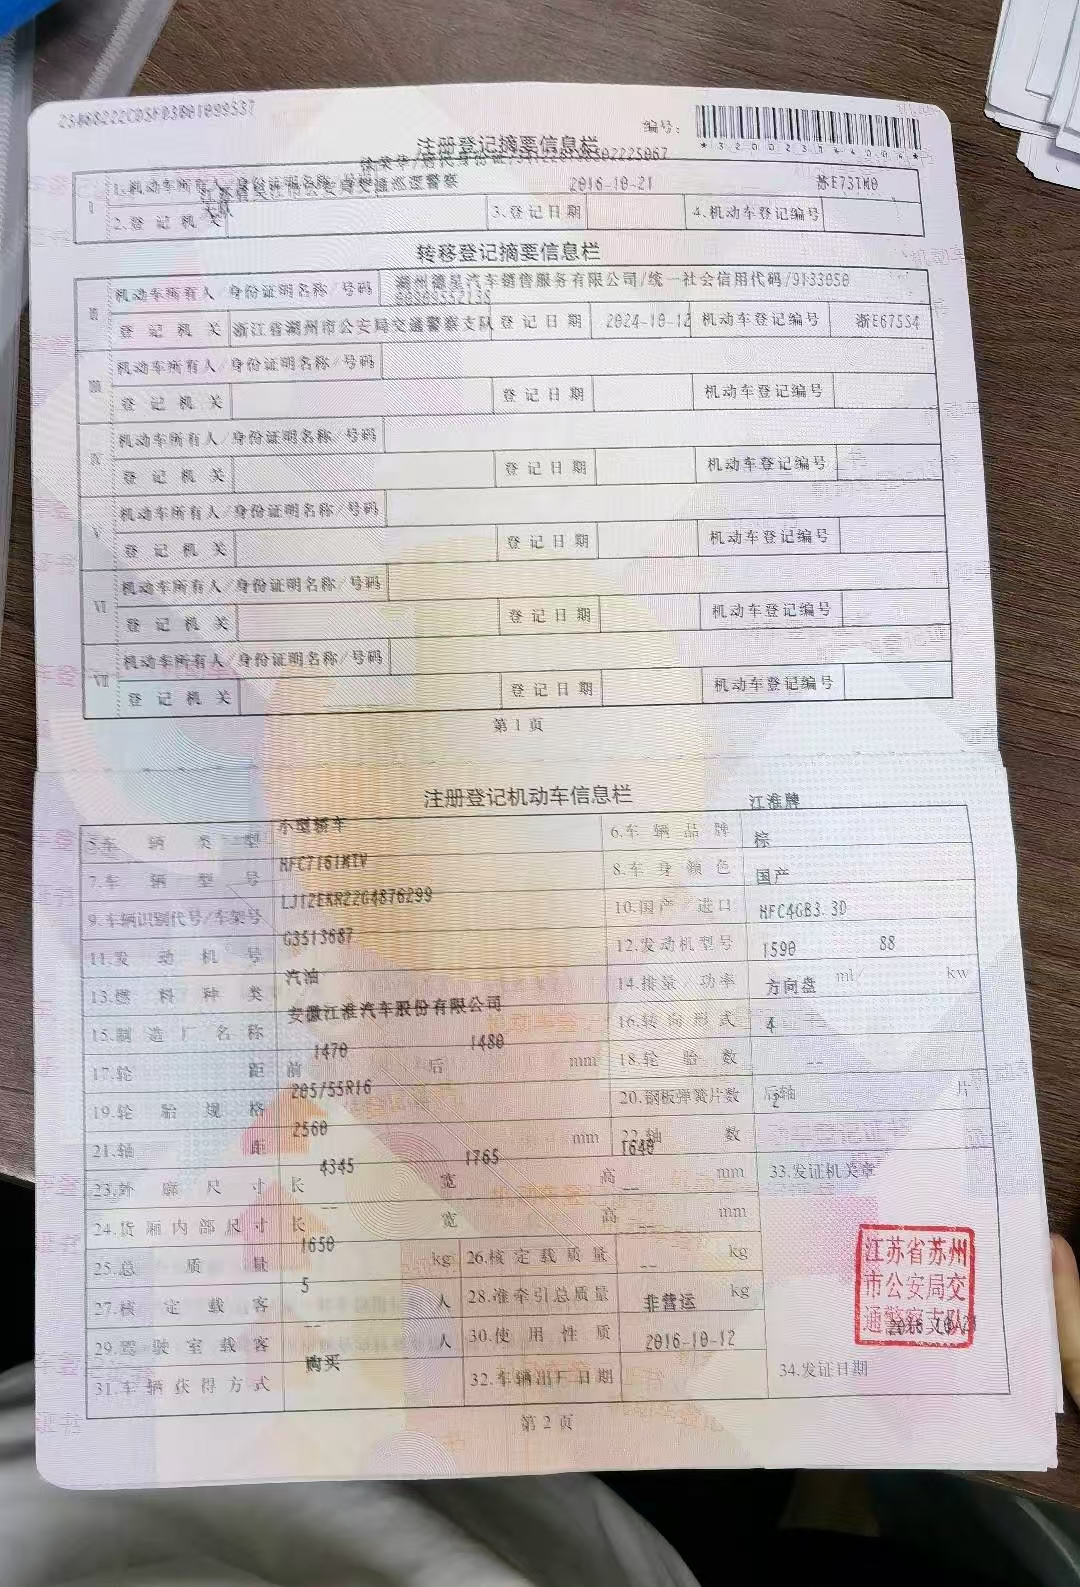 23468222CDSFD3B01099537
编号：
*320023764004*
注册登记摘要信息栏
Ⅰ 1.机动车所有人/身份证明名称/号码
2.登记机关 3.登记日期 2016-10-21 4.机动车登记编号 苏E73TM0
转移登记摘要信息栏
Ⅱ 机动车所有人/身份证明名称/号码 湖州德星汽车销售服务有限公司/统一社会信用代码/9133050
登记机关 浙江省湖州市公安局交通警察支队 登记日期 2024-10-12 机动车登记编号 浙E675S4
Ⅲ 机动车所有人/身份证明名称/号码
登记机关 登记日期 机动车登记编号
Ⅳ 机动车所有人/身份证明名称/号码
登记机关 登记日期 机动车登记编号
Ⅴ 机动车所有人/身份证明名称/号码
登记机关 登记日期 机动车登记编号
Ⅵ 机动车所有人/身份证明名称/号码
登记机关 登记日期 机动车登记编号
Ⅶ 机动车所有人/身份证明名称/号码
登记机关 登记日期 机动车登记编号
第1页
注册登记机动车信息栏
5.车辆类型 小型轿车 6.车辆品牌 江淮牌
7.车辆型号 HFC7161MIV 8.车身颜色 棕
9.车辆识别代号/车架号 LJ12EKR22G4876299 10.国产/进口 国产
11.发动机号 G3513687 12.发动机型号 HFC4GB3.3D
13.燃料种类 汽油 14.排量/功率 1590 ml/ 88 kw
15.制造厂名称 安徽江淮汽车股份有限公司 16.转向形式 方向盘
17.轮距 前 1470 后 1480 mm 18.轮胎数 4
19.轮胎规格 205/55R16 20.钢板弹簧片数 后轴 -- 片
21.轴距 2560 mm 22.轴数 2
23.外廓尺寸 长 4345 宽 1765 高 1640 mm 33.发证机关章
24.货厢内部尺寸 长 -- 宽 高 -- mm
25.总质量 1650 kg 26.核定载质量 -- kg
27.核定载客 5 人 28.准牵引总质量 -- kg
29.驾驶室载客 -- 人 30.使用性质 非营运
31.车辆获得方式 购买 32.车辆出厂日期 2016-10-12 34.发证日期
江苏省苏州
市公安局交
通警察支队
第2页